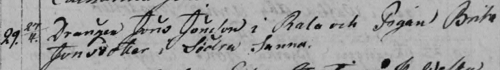 29. 27/4. Drängen Jöns Jönsson i Rala och Pigan Brita
Jonsdotter i Södra Sanna.